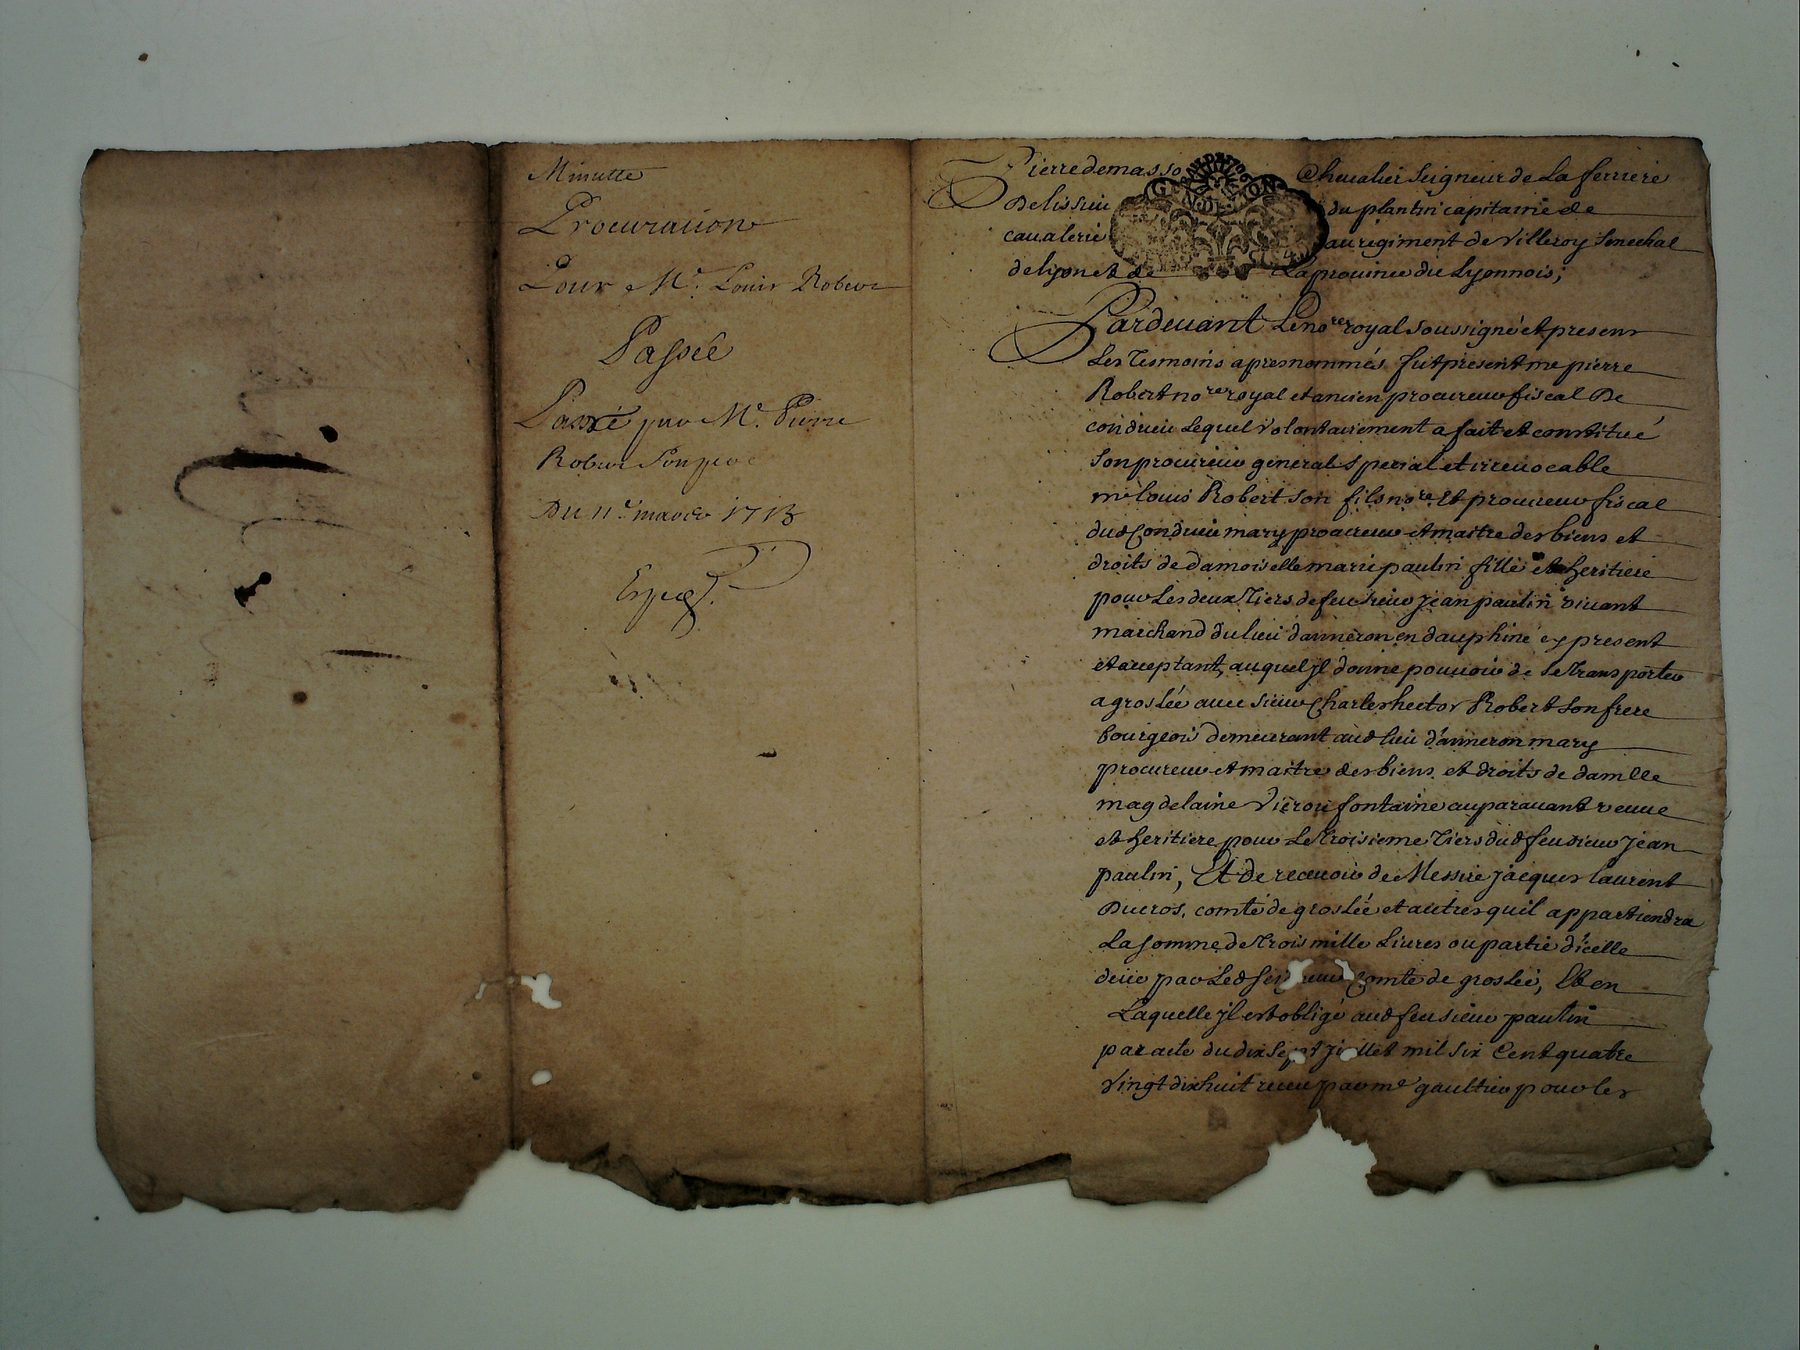 Minutte
Procuration
Pour Me. Louis Robert
Passée
Passé par Me. Pierre
Robert Son pere
Du 11e. mars 1713
Exped.
Pierre de masso Chevalier Seigneur de La ferriere
De lissieu du plantin capitaine de
caualerie au regiment de Villeroy Senechal
de lyon et de La prouince du Lyonnois;
Pardeuant Le nore. royal soussigné et presens
Les Tesmoins apres nommés, fut present me pierre
Robert nore royal et ancien procureur fiscal De
condrieu Lequel volontairement a fait et constitué
Son procureur general Special et irreuocable
me louis Robert son fils nore. et procureur fiscal
dud Condrieu mary procureur et maitre des biens et
droits de damoiselle marie paulin fille et heritiere
pour Les deux Tiers de feu sieur jean paulin viuant
marchand du lieu danneron en dauphiné cy present
et acceptant, auquel jl donne pouuoir de se Transporter
a groslée auec sieur Charles hector Robert son frere
bourgeois demeurant aud lieu d'anneron mary
procureur et maitre des biens et droits de damlle
magdelaine Vieron fontaine auparauant veuue
et heritiere pour Le Troisieme Tiers dud feu sieur jean
paulin, Et de receuoir de Messire jacques laurent
Ducros, comte de groslée et autres quil appartiendra
La somme de Trois mille Liures ou partie d'icelle
deüe par Led Seigneur Comte de groslée, Et en
Laquelle jl est obligé aud feu sieur paulin
par acte du dix Sept juillet mil six Cent quatre
Vingt dix huit receu par me gaultier pour les